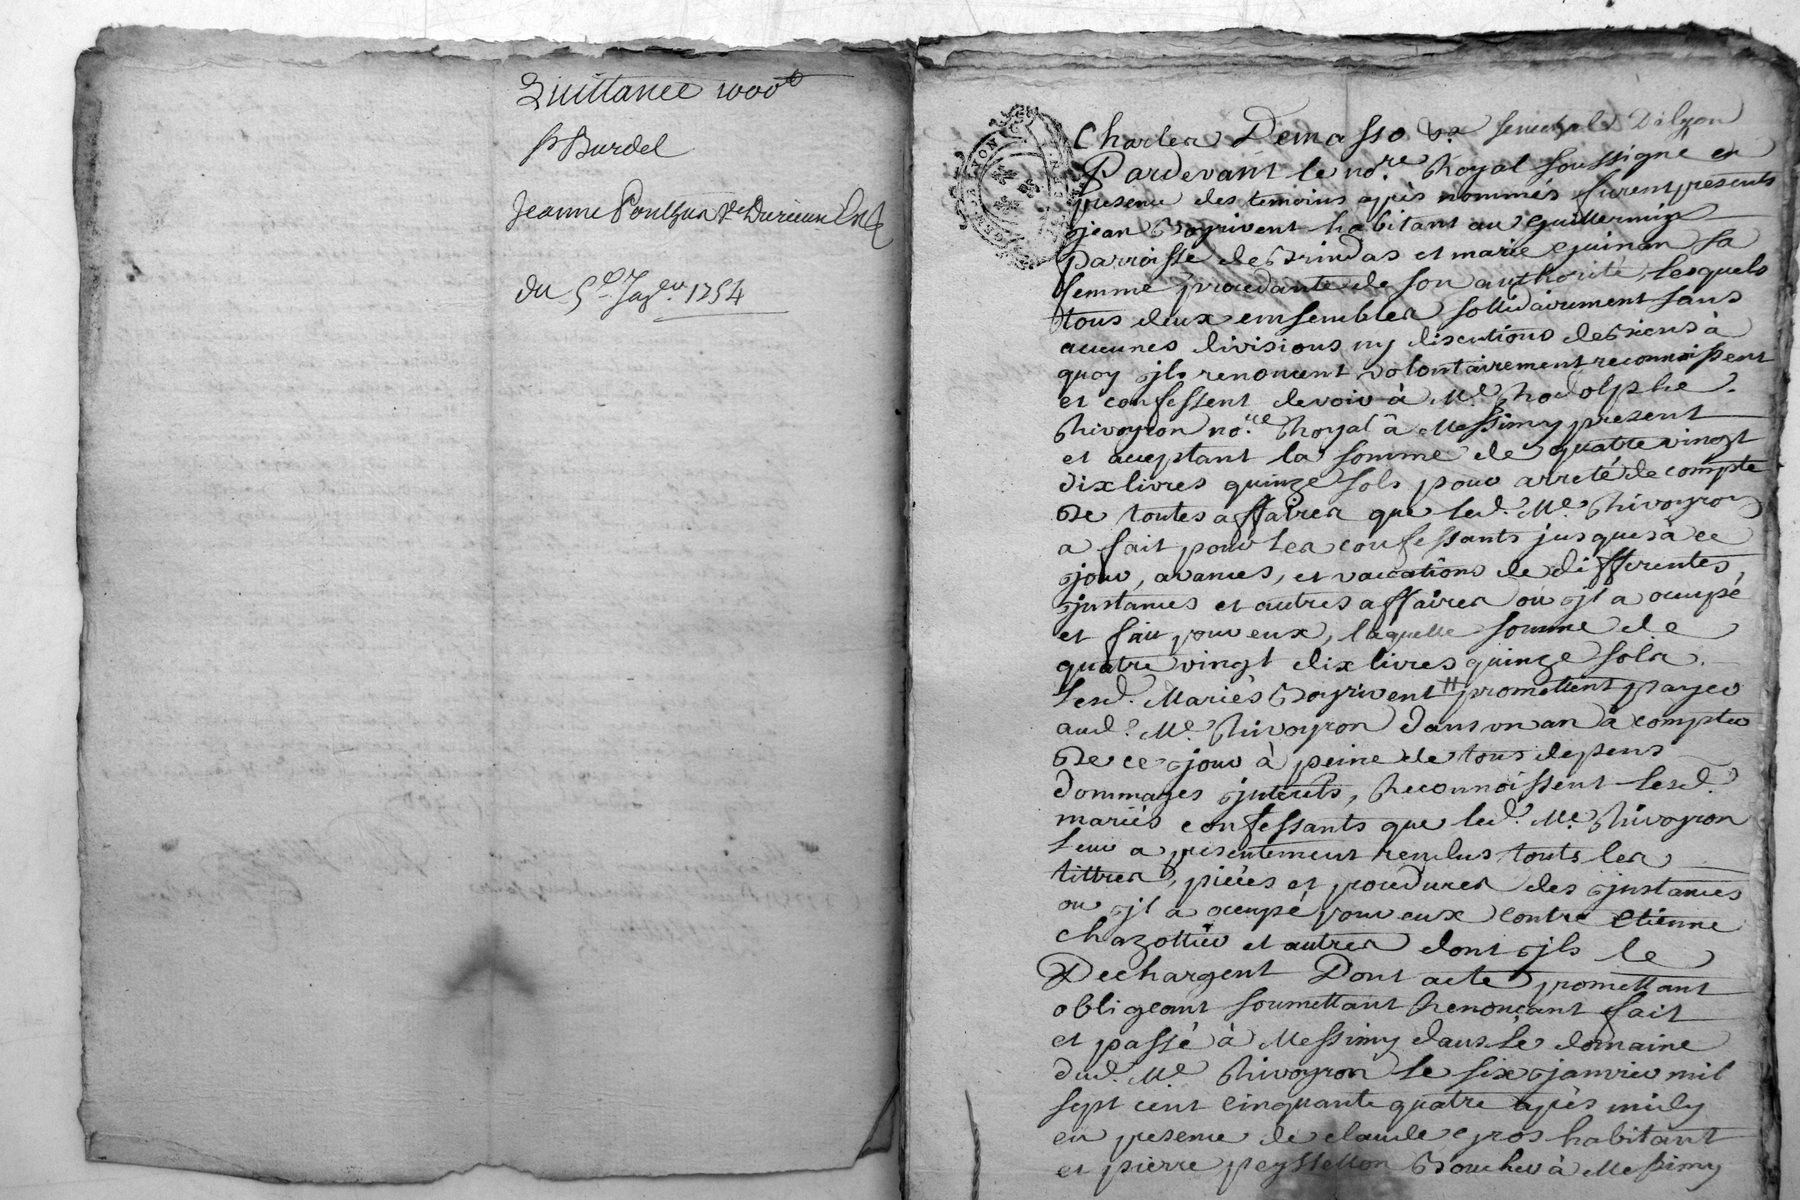 Quittance 1000#
Sr Burdel
Jeanne Ponthus Ve
du 5e Janvr. 1754
Charles Demasso &a senechal Delyon
Pardevant le no.re Royal soussigné en
presence des temoins après nommés furent presents
jean Voyrivent habitant au Guillermin
parroisse de Brindas et marie Guinan sa
femme procedante de son authorité, lesquels
tous deux ensembles sollidairement sans
aucunes divisions ny discutions de biens à
quoy jls renoncent volontairement reconnoissent
et confessent devoir à Me. Rodolphe
Rivoyron no.re Royal à Messimy present
et acceptant la somme de quatre vingt
dix livres quinze sols pour arreté de compte
De toutes affaires que led. Me. Rivoyron
a fait pour les confessants jusques à ce
jour, avances, et vaccations de differentes
jnstances et autres affaires ou jl a occupé
et fait pour eux, laquelle somme de
quatre vingt dix livres quinze sols
lesd. Mariés Voyrivent promettent payer
aud. Me. Rivoyron dans un an à compter
De ce jour à peine de tous depens
Dommages jnterets, Reconnoissent lesd.
mariés confessants que led. Me. Rivoyron
leur a presentement rendus touts les
tittres, pieces et procedures des jnstances
ou jl a occupé pour eux contre Etienne
Chazottier et autres dont jls le
Dechargent Dont acte promettant
obligeant soumettant Renonçant fait
et passé à Messimy dans le domaine
dud. Me. Rivoyron le six janvier mil
sept cent cinquante quatre après midy
en presence de claude gros habitant
et pierre peyssellon Boucher à Messimy